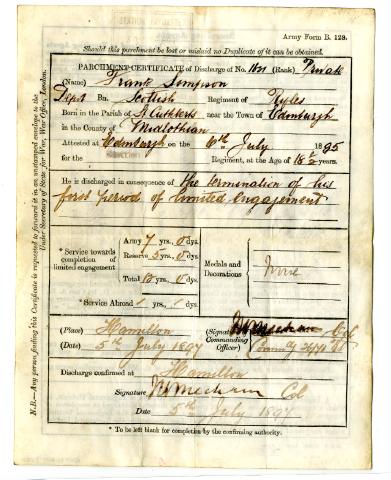 Army Form B. 128.
Should this parchment be lost or mislaid no Duplicate of it can be obtained.
PARCHMENT CERTIFICATE of Discharge of No. (Rank) Private
(Name) Frank Simpson
Dept Bn. Scottish Regiment of Rifles
Born in the Parish of St Cuthberts near the Town of Edinburgh
in the County of Midlothian
Attested at Edinburgh on the 6th July 1895
for the Regiment, at the Age of 18 ½ years.
He is discharged in consequence of the termination of his
first period of limited engagement
* Service towards completion of limited engagement
Army 7 yrs. 0 dys.
Reserve 5 yrs. 0 dys.
Total 12 yrs. 0 dys.
* Service Abroad yrs. dys.
Medals and Decorations
None
(Place) Hamilton
(Date) 5th July 1897
(Signature Commanding Officer) Col
Discharge confirmed at Hamilton
Signature Col
Date 5th July 1897
* To be left blank for completion by the confirming authority.
N.B.—Any person finding this Certificate is requested to forward it in an unstamped envelope to the
Under Secretary of State for War, War Office, London.